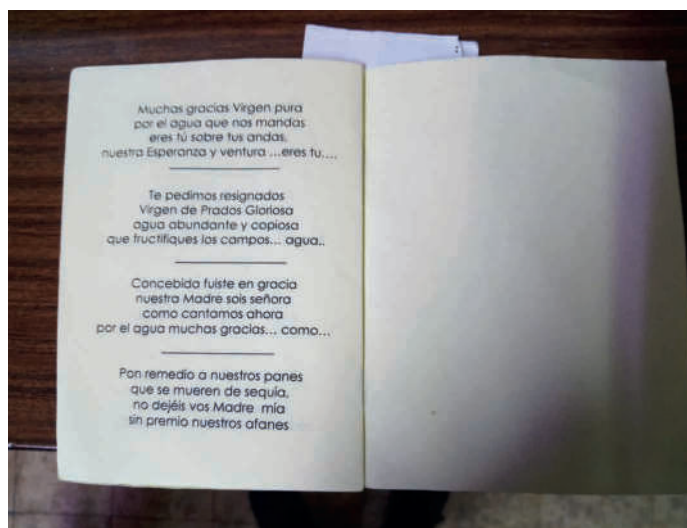 Muchas gracias Virgen pura
por el agua que nos mandas
eres tú sobre tus andas,
nuestra Esperanza y ventura ...eres tu,...
Te pedimos resignados
Virgen de Prados Gloriosa
agua abundante y copiosa
que fructifiques los campos... agua..
Concebida fuiste en gracia
nuestra Madre sois señora
como cantamos ahora
por el agua muchas gracias... como...
Pon remedio a nuestros panes
que se mueren de sequía,
no dejéis vos Madre mía
sin premio nuestros afanes